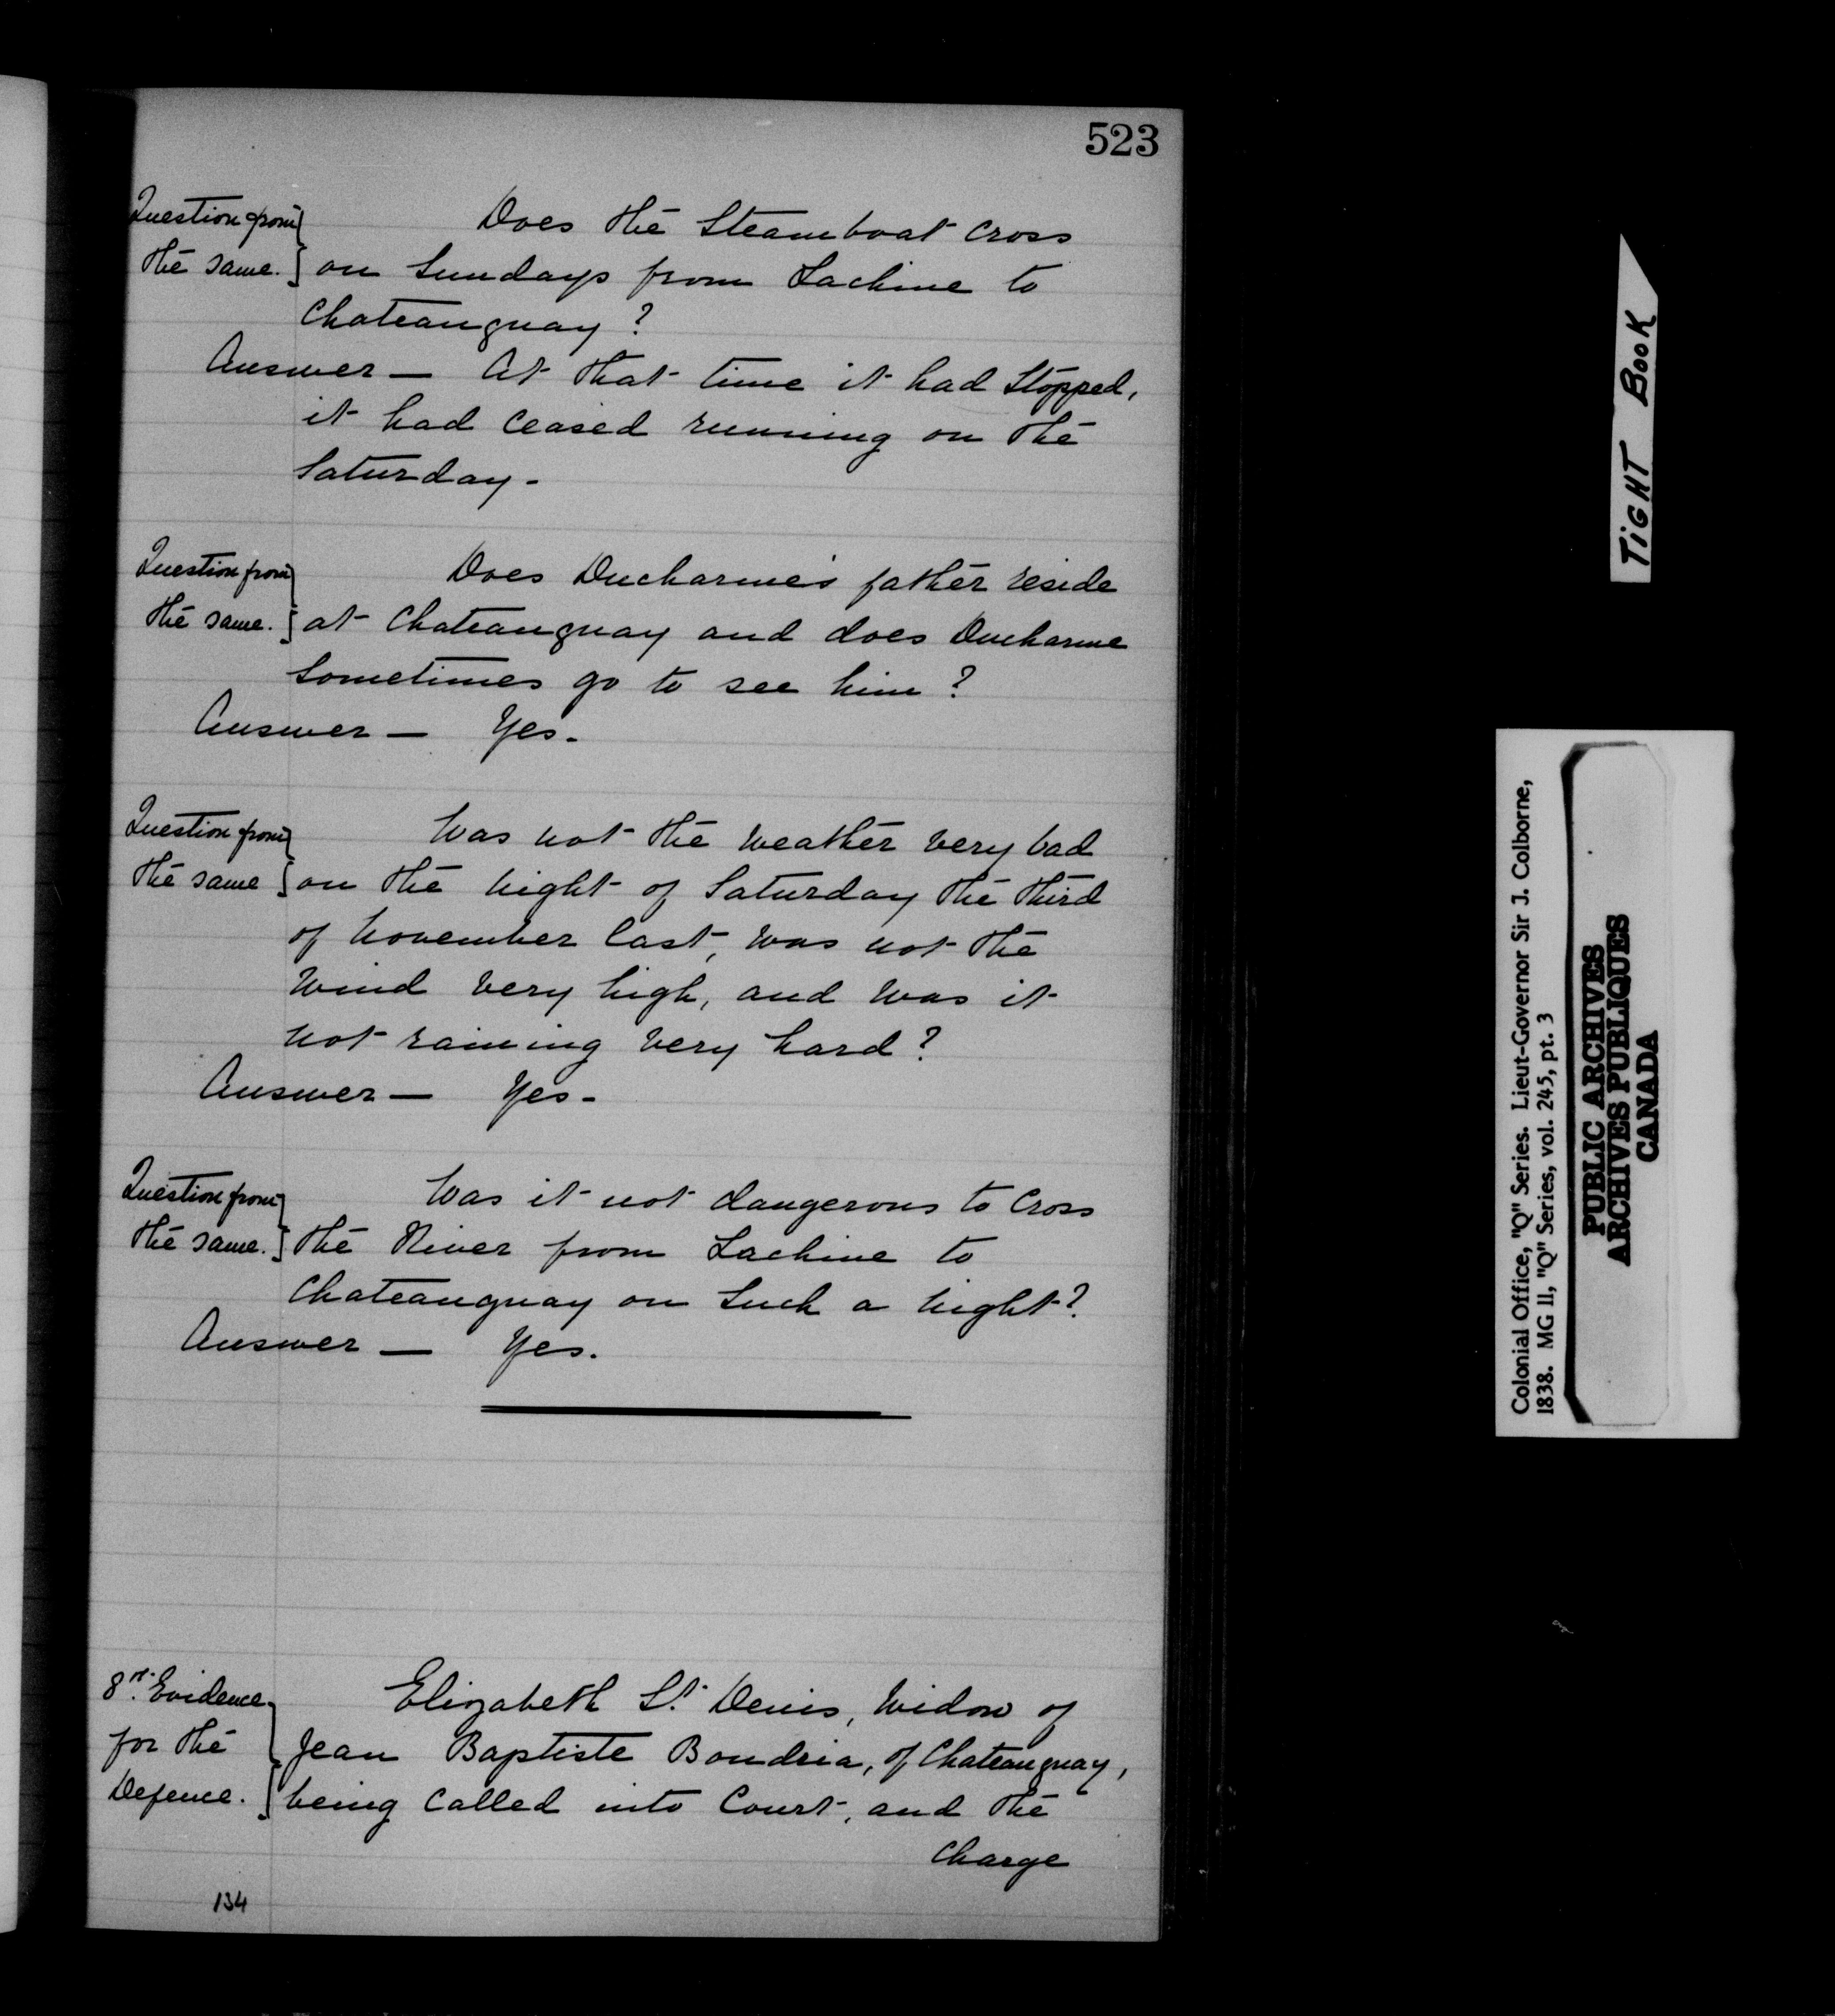 523
Question from the same. Does the Steamboat cross
on Sundays from Lachine to
Chateauguay?
Answer — At that time it had Stopped,
it had ceased running on the
Saturday -
Question from the same. Does Ducharme's father reside
at Chateauguay and does Ducharme
Sometimes go to see him?
Answer — Yes -
Question from the same Was not the weather very bad
on the night of Saturday the third
of November last, was not the
Wind very high, and was it
not raining very hard?
Answer — Yes -
Question from the same. Was it not dangerous to Cross
the River from Lachine to
Chateauguay on Such a night?
Answer — Yes.
8th Evidence for the Defence. Elizabeth St. Denis, Widow of
Jean Baptiste Boudria, of Chateauguay,
being Called into Court, and the
Charge
134
TIGHT BOOK
Colonial Office, "Q" Series. Lieut-Governor Sir J. Colborne,
1838. MG 11, "Q" Series, vol. 245, pt. 3
PUBLIC ARCHIVES
ARCHIVES PUBLIQUES
CANADA